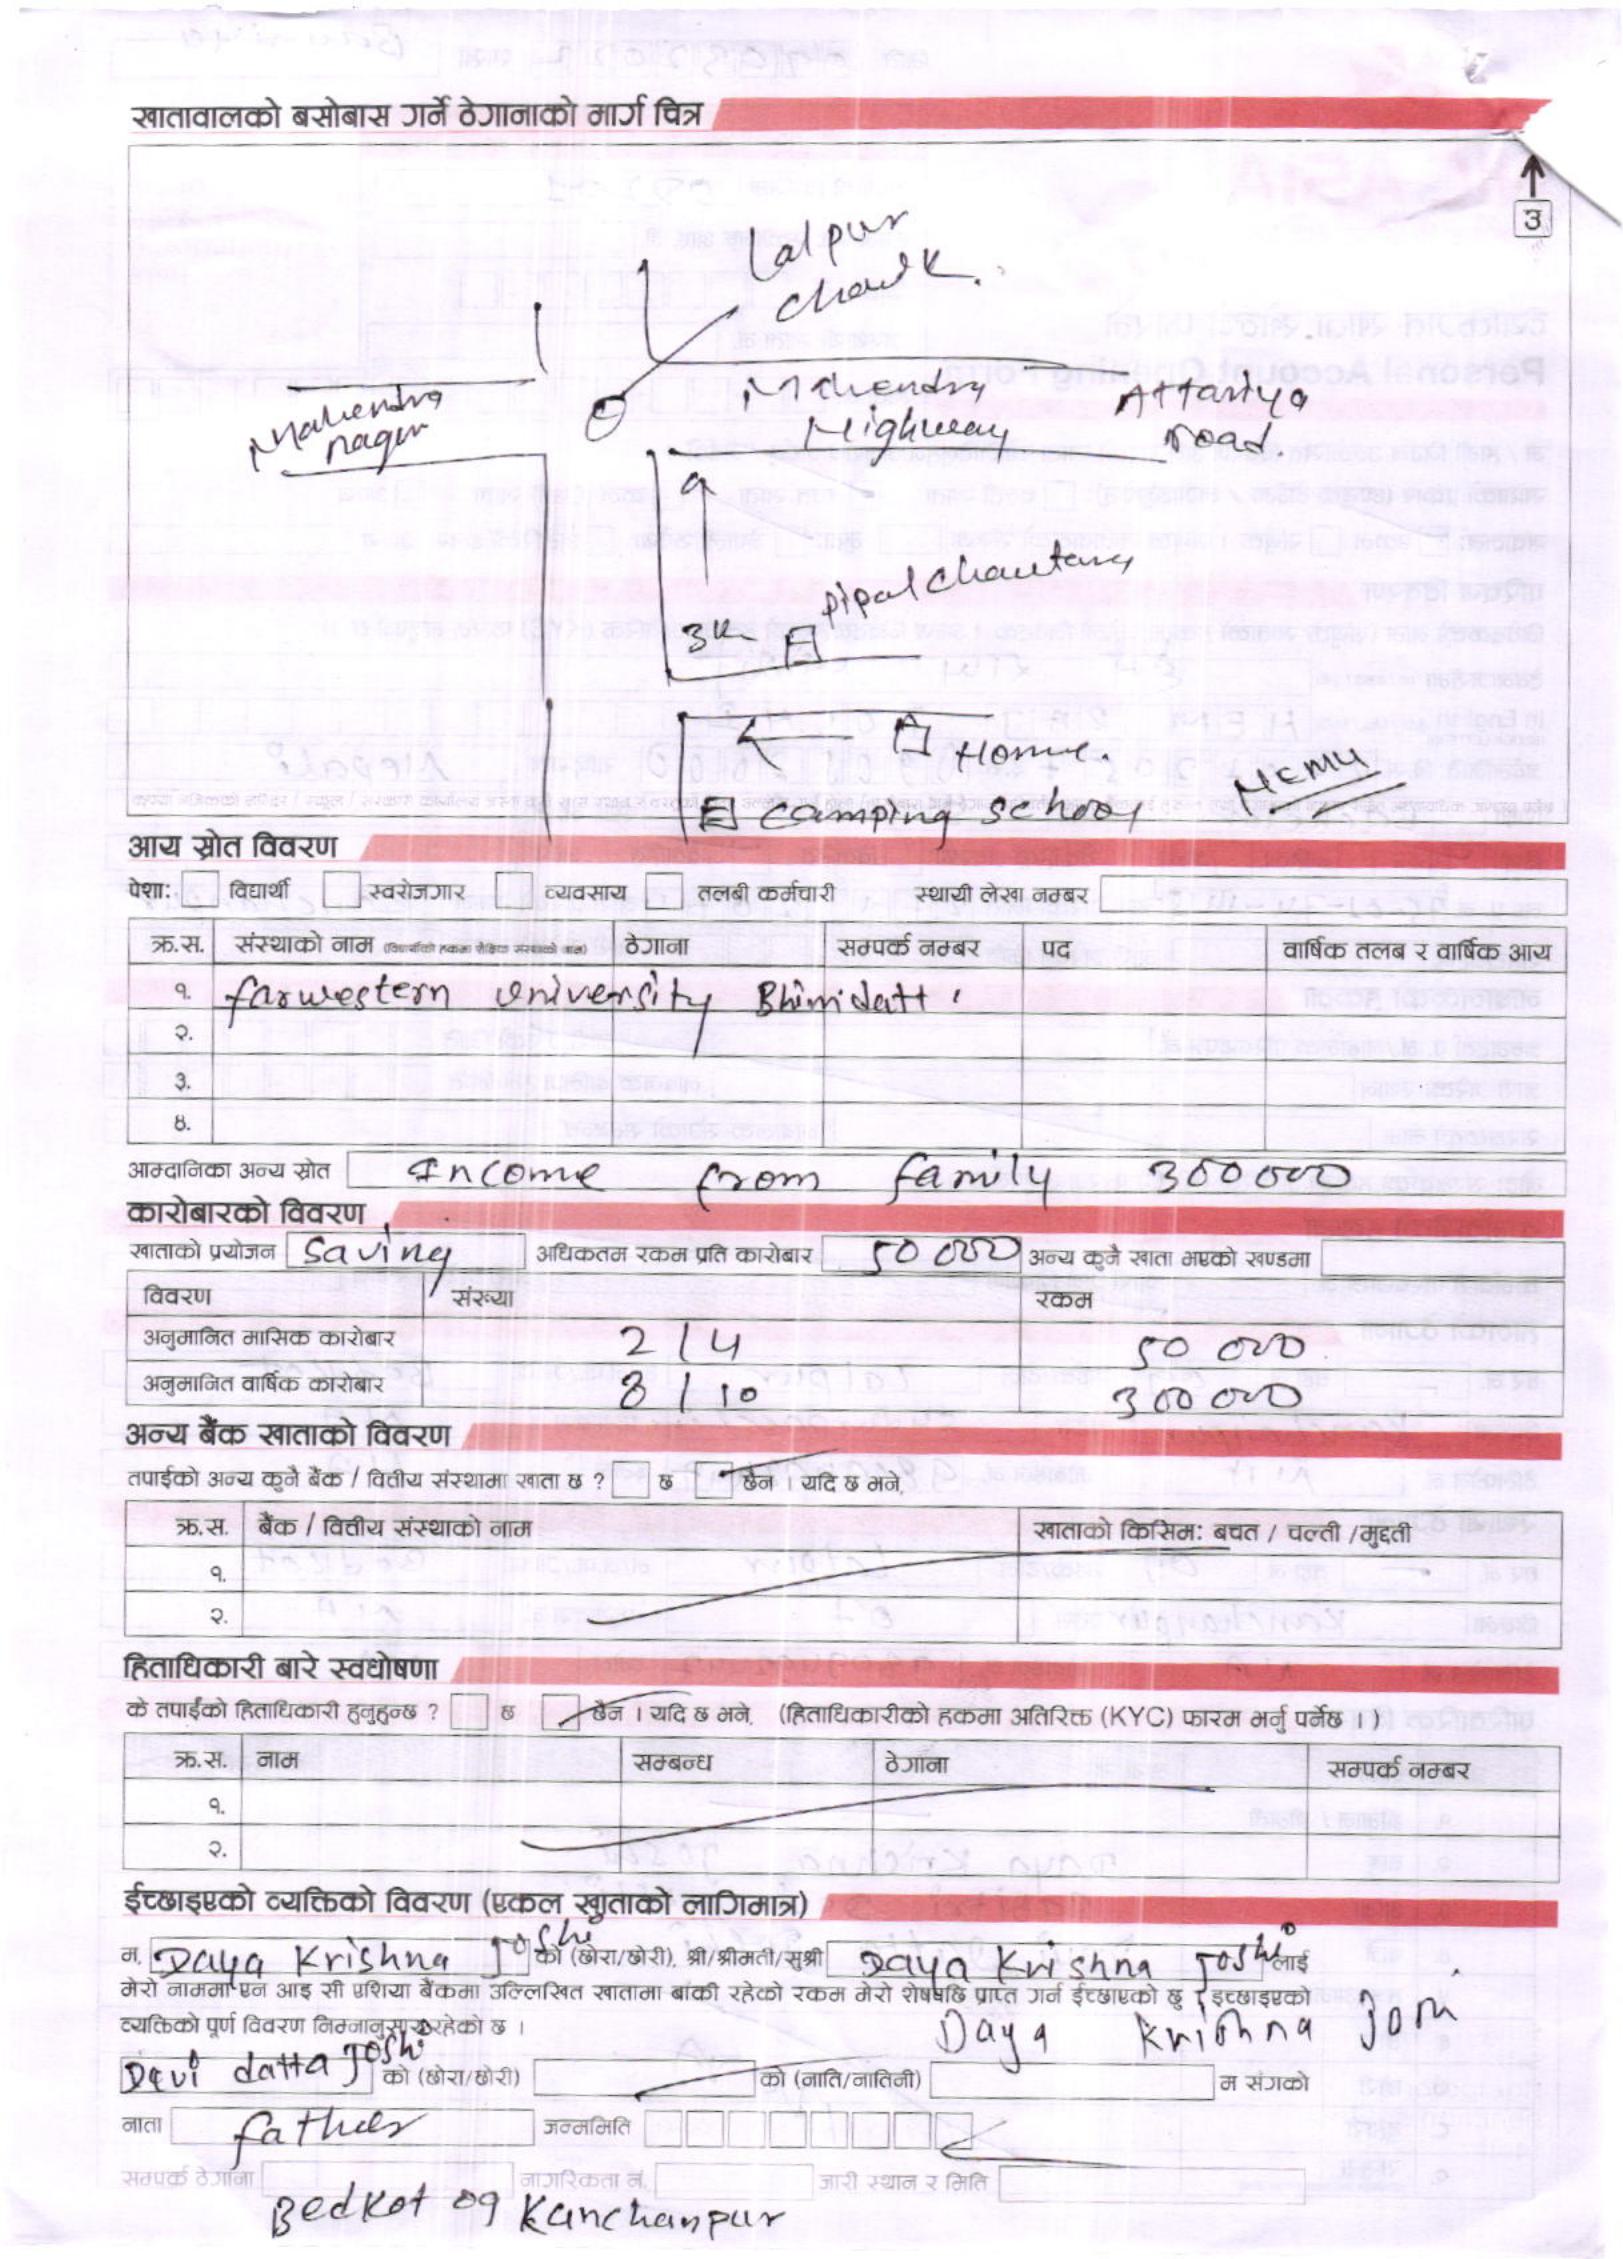 खातावालको बसोबास गर्ने ठेगानाको मार्ग चित्र
3
Lalpur
chowk
Mahendra
nagar
Mahendra
Highway
Attariya
road
pipal chautary
3K
Home.
Camping school
आय स्रोत विवरण
पेशा: विद्यार्थी स्वरोजगार व्यवसाय तलबी कर्मचारी स्थायी लेखा नम्बर
क्र.स. संस्थाको नाम (विद्यार्थीको हकमा शैक्षिक संस्थाको नाम) ठेगाना सम्पर्क नम्बर पद वार्षिक तलब र वार्षिक आय
१. farwestern University Bhimdatt
२.
३.
४.
आम्दानिका अन्य स्रोत Income from family 300000
कारोबारको विवरण
खाताको प्रयोजन Saving अधिकतम रकम प्रति कारोबार 50000 अन्य कुनै खाता भएको खण्डमा
विवरण संख्या रकम
अनुमानित मासिक कारोबार 2/4 50000
अनुमानित वार्षिक कारोबार 8/10 300000
अन्य बैंक खाताको विवरण
तपाईको अन्य कुनै बैंक / वित्तीय संस्थामा खाता छ ? छ छैन । यदि छ भने,
क्र.स. बैंक / वित्तीय संस्थाको नाम खाताको किसिम: बचत / चल्ती /मुद्दती
१.
२.
हिताधिकारी बारे स्वघोषणा
के तपाईंको हिताधिकारी हुनुहुन्छ ? छ छैन । यदि छ भने, (हिताधिकारीको हकमा अतिरिक्त (KYC) फारम भर्नु पर्नेछ
क्र.स. नाम सम्बन्ध ठेगाना सम्पर्क नम्बर
१.
२.
ईच्छाइएको व्यक्तिको विवरण (एकल खाताको लागिमात्र)
म, Daya Krishna Joshi को (छोरा/छोरी), श्री/श्रीमती/सुश्री Daya Krishna Joshi लाई
मेरो नाममा एन आइ सी एशिया बैंकमा उल्लिखित खातामा बांकी रहेको रकम मेरो शेषपछि प्राप्त गर्न ईच्छाएको छु र इच्छाइएको
व्यक्तिको पूर्ण विवरण निम्नानुसार रहेको छ ।
Daya Krishna Joshi
Devi datta Joshi को (छोरा/छोरी) को (नाति/नातिनी) म संगको
नाता father जन्ममिति
सम्पर्क ठेगाना नागरिकता नं. जारी स्थान र मिति
Bedkot 09 Kanchanpur